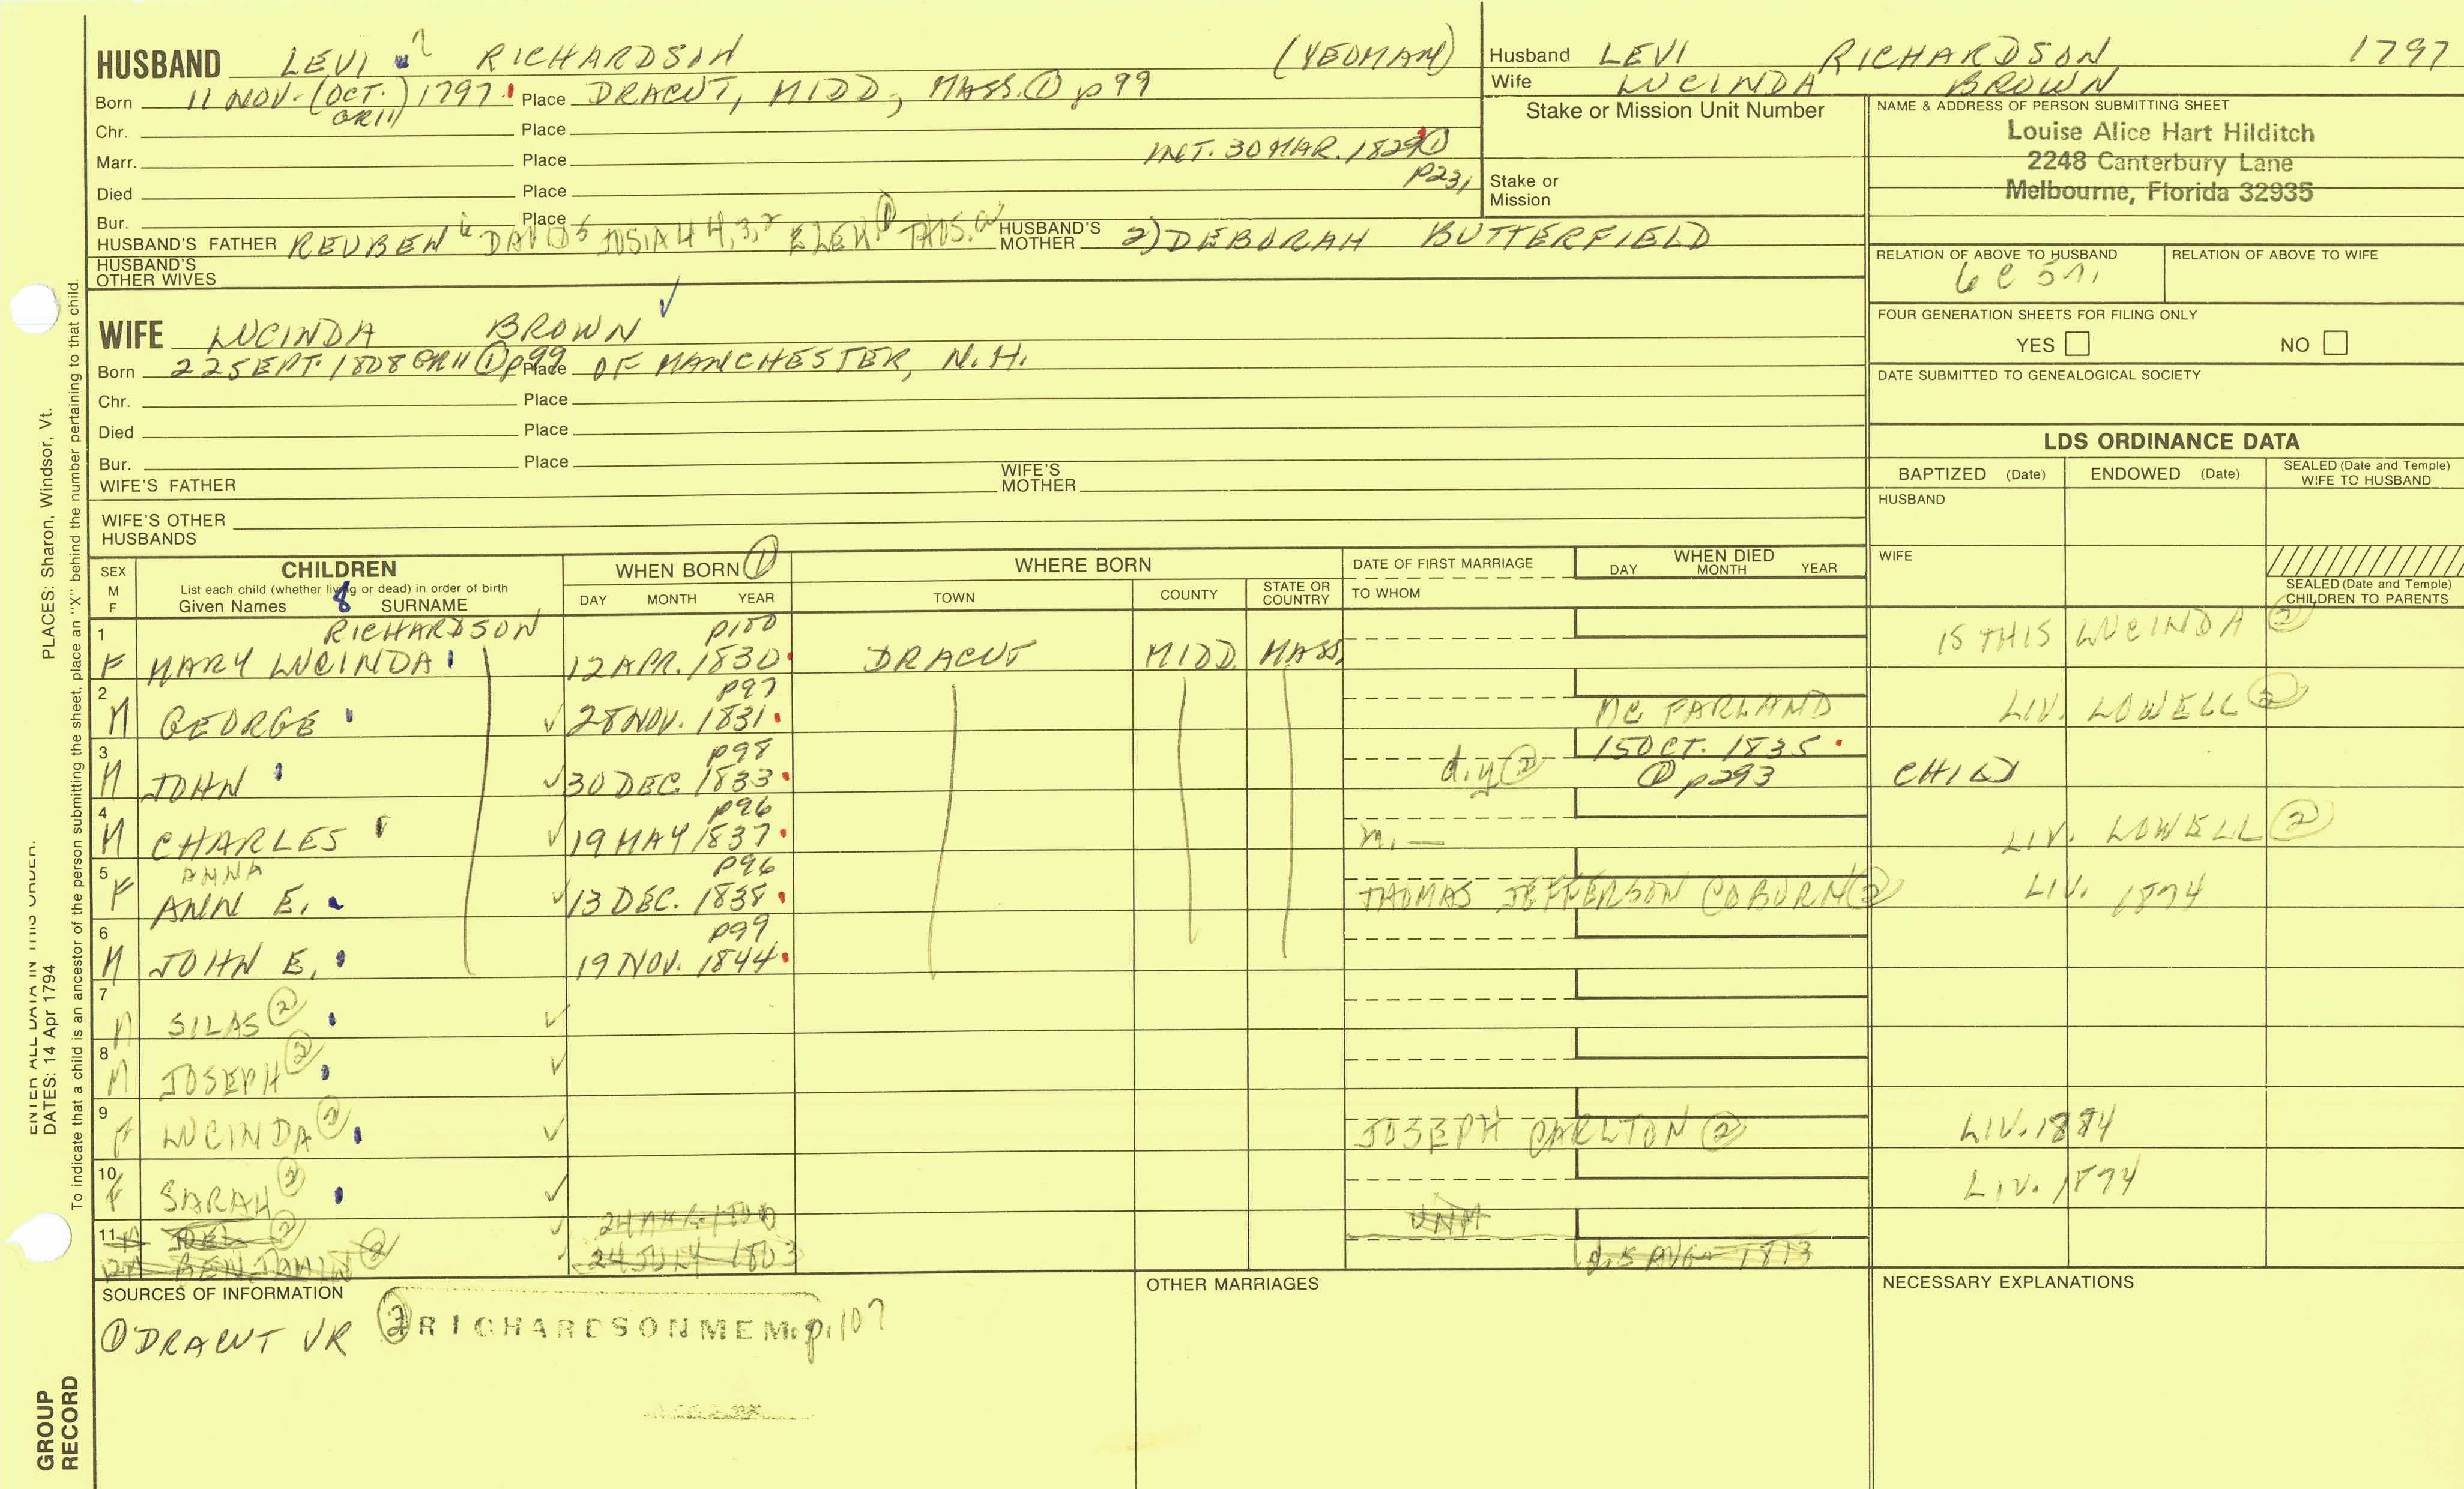 HUSBAND LEVI RICHARDSON (YEOMAN)
Born 11 NOV. (OCT. GR11) 1797 Place DRACUT, MIDD, MASS. ① p99
Chr. Place
Marr. Place INT. 30 MAR. 1829 ① P231
Died Place
Bur. Place
HUSBAND'S FATHER REUBEN 6 DAVID 5 JOSIAH 4,3,2 EZEK 1 THOS. HUSBAND'S MOTHER 2) DEBORAH BUTTERFIELD
HUSBAND'S OTHER WIVES
WIFE LUCINDA BROWN
Born 22 SEPT. 1808 GR11 ① p99 Place OF MANCHESTER, N.H.
Chr. Place
Died Place
Bur. Place
WIFE'S FATHER WIFE'S MOTHER
WIFE'S OTHER HUSBANDS
Husband LEVI RICHARDSON 1797
Wife LUCINDA BROWN
Stake or Mission Unit Number
Stake or Mission
NAME & ADDRESS OF PERSON SUBMITTING SHEET
Louise Alice Hart Hilditch
2248 Canterbury Lane
Melbourne, Florida 32935
RELATION OF ABOVE TO HUSBAND RELATION OF ABOVE TO WIFE
6 C 5 r,
FOUR GENERATION SHEETS FOR FILING ONLY
YES NO
DATE SUBMITTED TO GENEALOGICAL SOCIETY
LDS ORDINANCE DATA
BAPTIZED (Date) ENDOWED (Date) SEALED (Date and Temple) WIFE TO HUSBAND
HUSBAND
WIFE
SEALED (Date and Temple) CHILDREN TO PARENTS
SEX M F CHILDREN
List each child (whether living or dead) in order of birth
Given Names 8 SURNAME
WHEN BORN ①
DAY MONTH YEAR
WHERE BORN
TOWN COUNTY STATE OR COUNTRY
DATE OF FIRST MARRIAGE
TO WHOM
WHEN DIED
DAY MONTH YEAR
1 RICHARDSON p100
F MARY LUCINDA 12 APR. 1830 DRACUT MIDD. MASS. IS THIS LUCINDA ②
2 p97
M GEORGE 28 NOV. 1831 MC FARLAND LIV. LOWELL ②
3 p98 15 OCT. 1835
M JOHN 30 DEC. 1833 d.y ② ① p293 CHILD
4 p96
M CHARLES 19 MAY 1837 m. — LIV. LOWELL ②
5 ANNA p96
F ANN E. 13 DEC. 1838 THOMAS JEFFERSON COBURN ② LIV. 1874
6 p99
M JOHN E. 19 NOV. 1844
7
M SILAS ②
8
M JOSEPH ②
9
F LUCINDA ② JOSEPH CARLTON ② LIV. 1874
10
F SARAH ② LIV. 1874
11 M JOEL ② 24 MAR. 1800 UNM
12 M BENJAMIN ② 24 JULY 1803 d. 5 AUG 1813
SOURCES OF INFORMATION
① DRACUT VR ② RICHARDSON MEM. p. 107
OTHER MARRIAGES
NECESSARY EXPLANATIONS
PLACES: Sharon, Windsor, Vt.
To indicate that a child is an ancestor of the person submitting the sheet, place an "X" behind the number pertaining to that child.
ENTER ALL DATA IN THIS ORDER:
DATES: 14 Apr 1794
GROUP RECORD